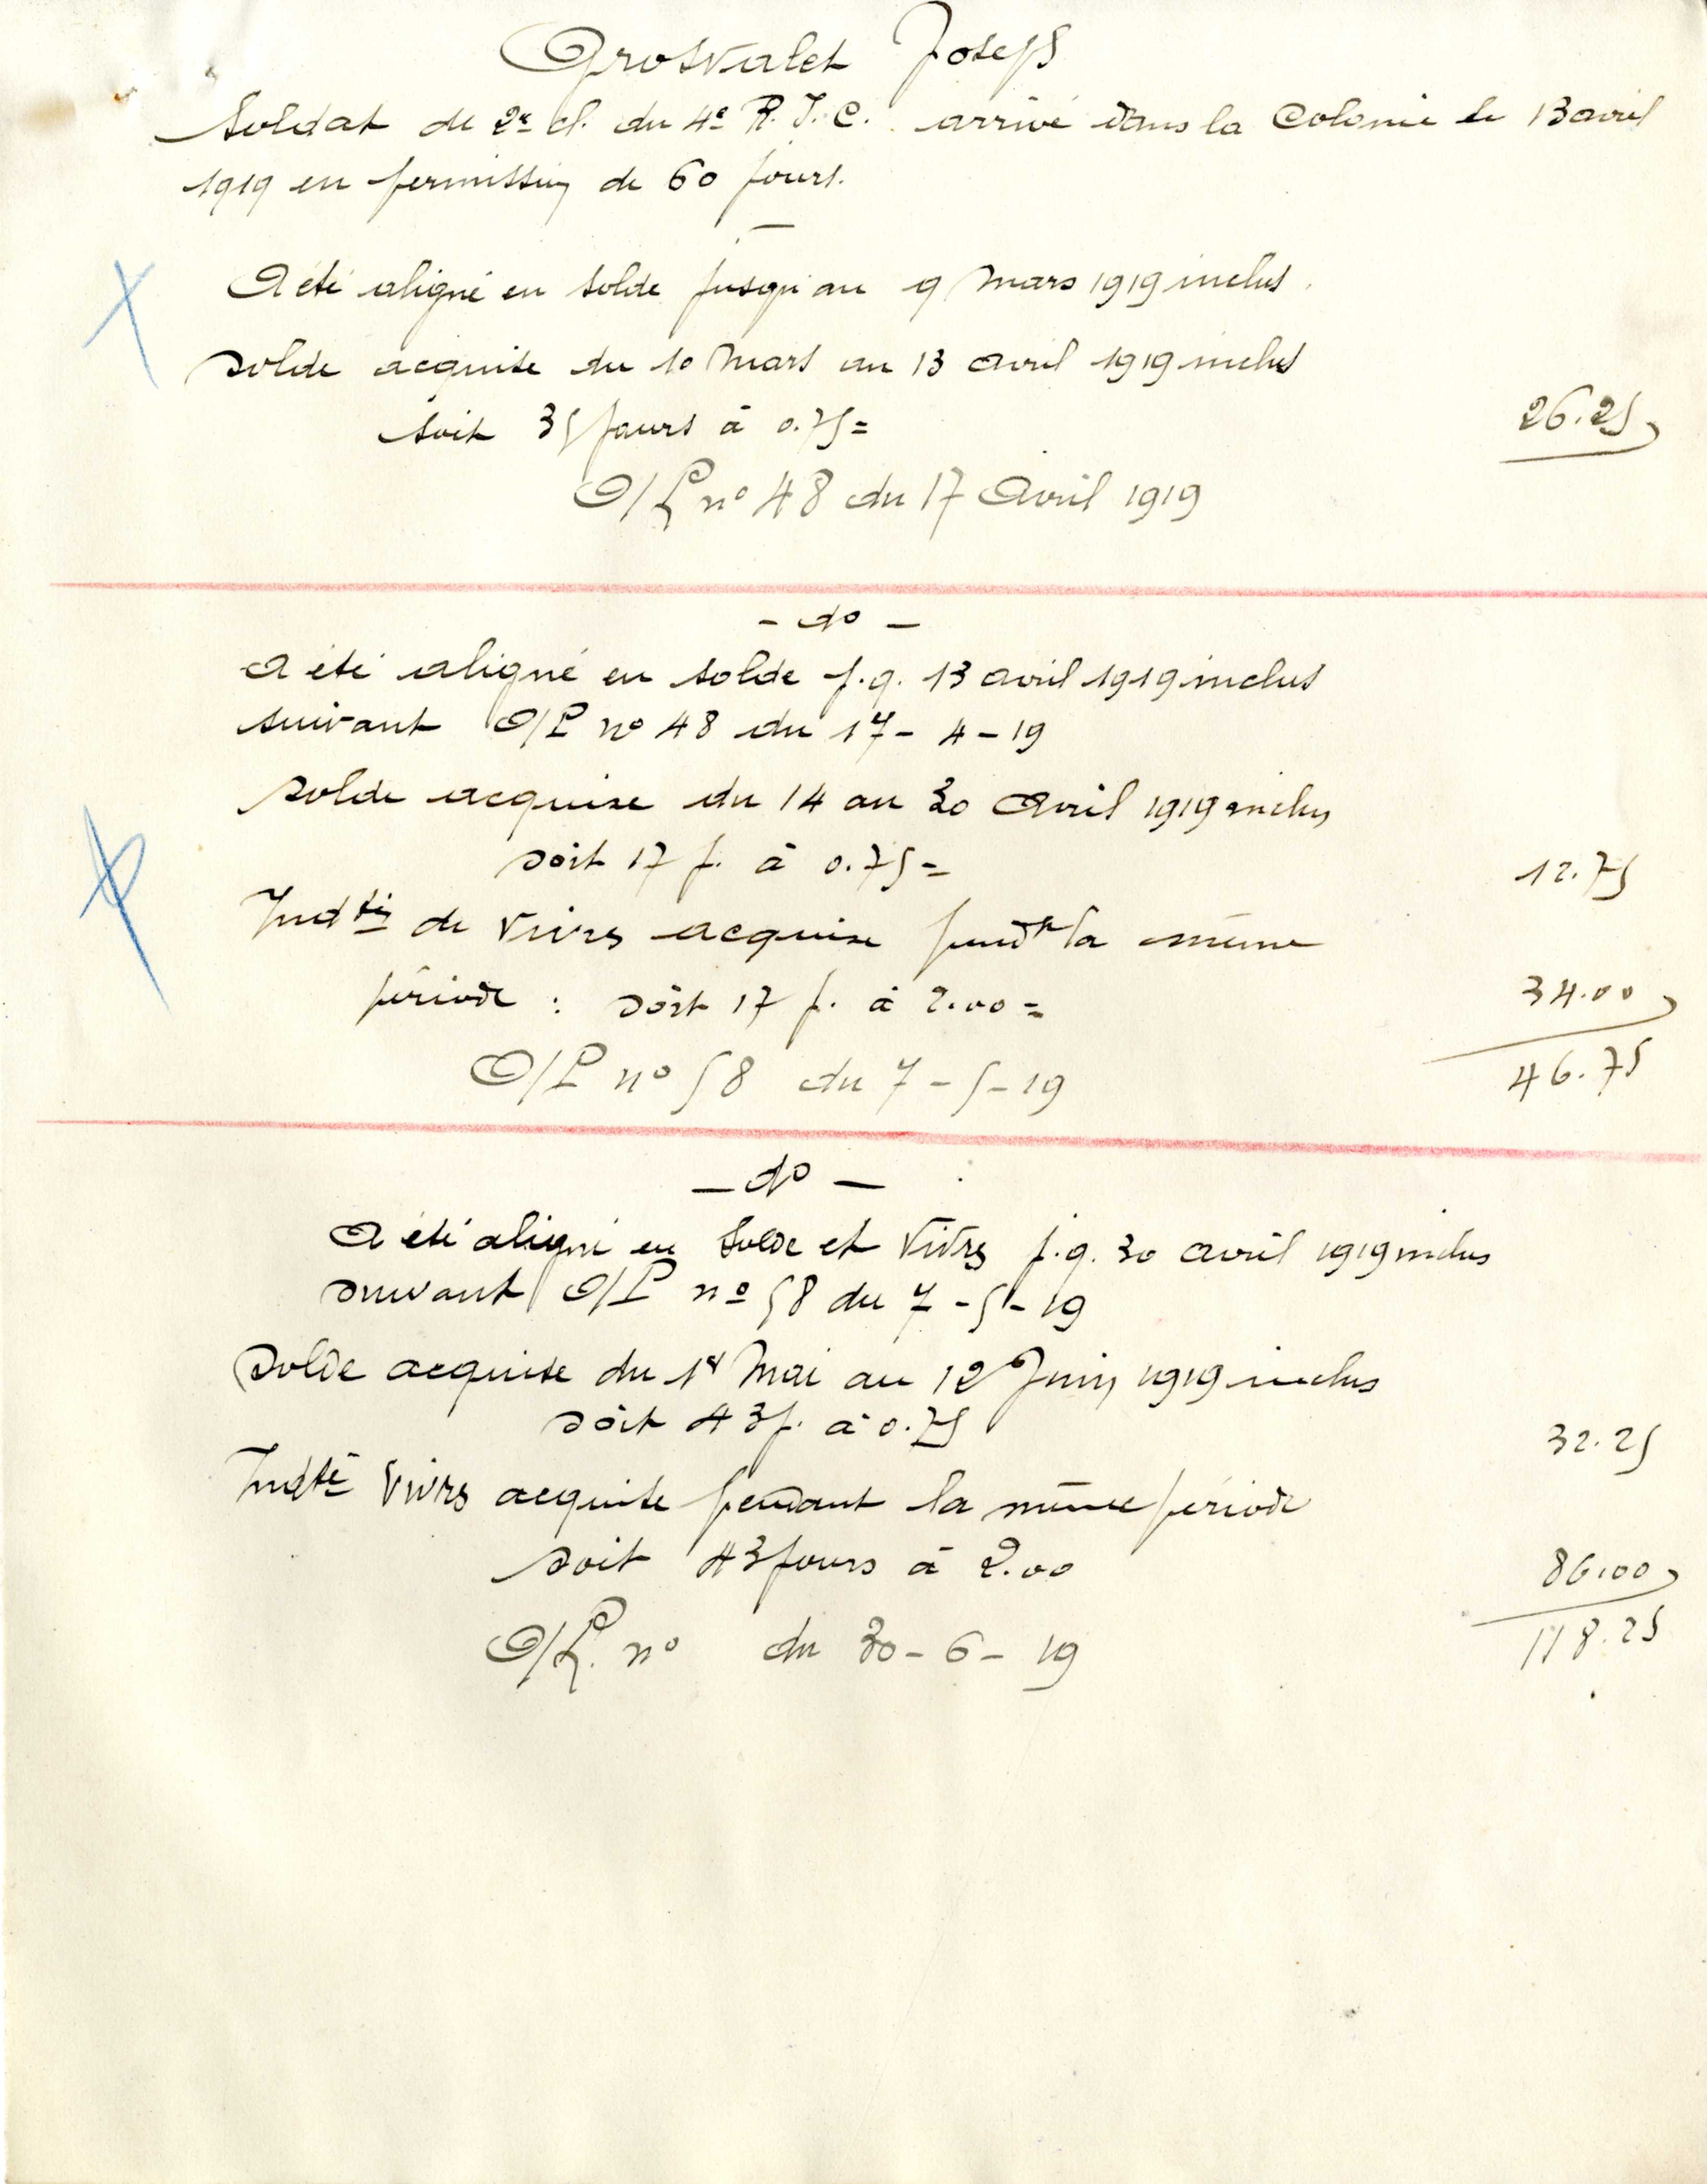 Grosvalet Joseph
Soldat de 2e cl. du 4e R.I.C. arrivé dans la Colonie le 13 avril
1919 en permission de 60 jours.
A été aligné en solde jusqu'au 9 Mars 1919 inclus.
Solde acquise du 10 Mars au 13 avril 1919 inclus
soit 35 jours à 0.75 =
26.25
O/P n° 48 du 17 Avril 1919
- d° -
A été aligné en solde j.q. 13 avril 1919 inclus
suivant O/P n° 48 du 17 - 4 - 19
Solde acquise du 14 au 30 Avril 1919 inclus
soit 17 j. à 0.75 =
12.75
Indté de vivres acquise pendt la même
période : soit 17 j. à 2.00 =
34.00
O/P n° 58 du 7 - 5 - 19
46.75
- d° -
A été aligné en solde et vivres j.q. 30 avril 1919 inclus
suivant O/P n° 58 du 7 - 5 - 19
Solde acquise du 1er Mai au 12 Juin 1919 inclus
soit 43 j. à 0.75
32.25
Indté vivres acquise pendant la même période
soit 43 jours à 2.00
86.00
O/P. n° du 30 - 6 - 19
118.25